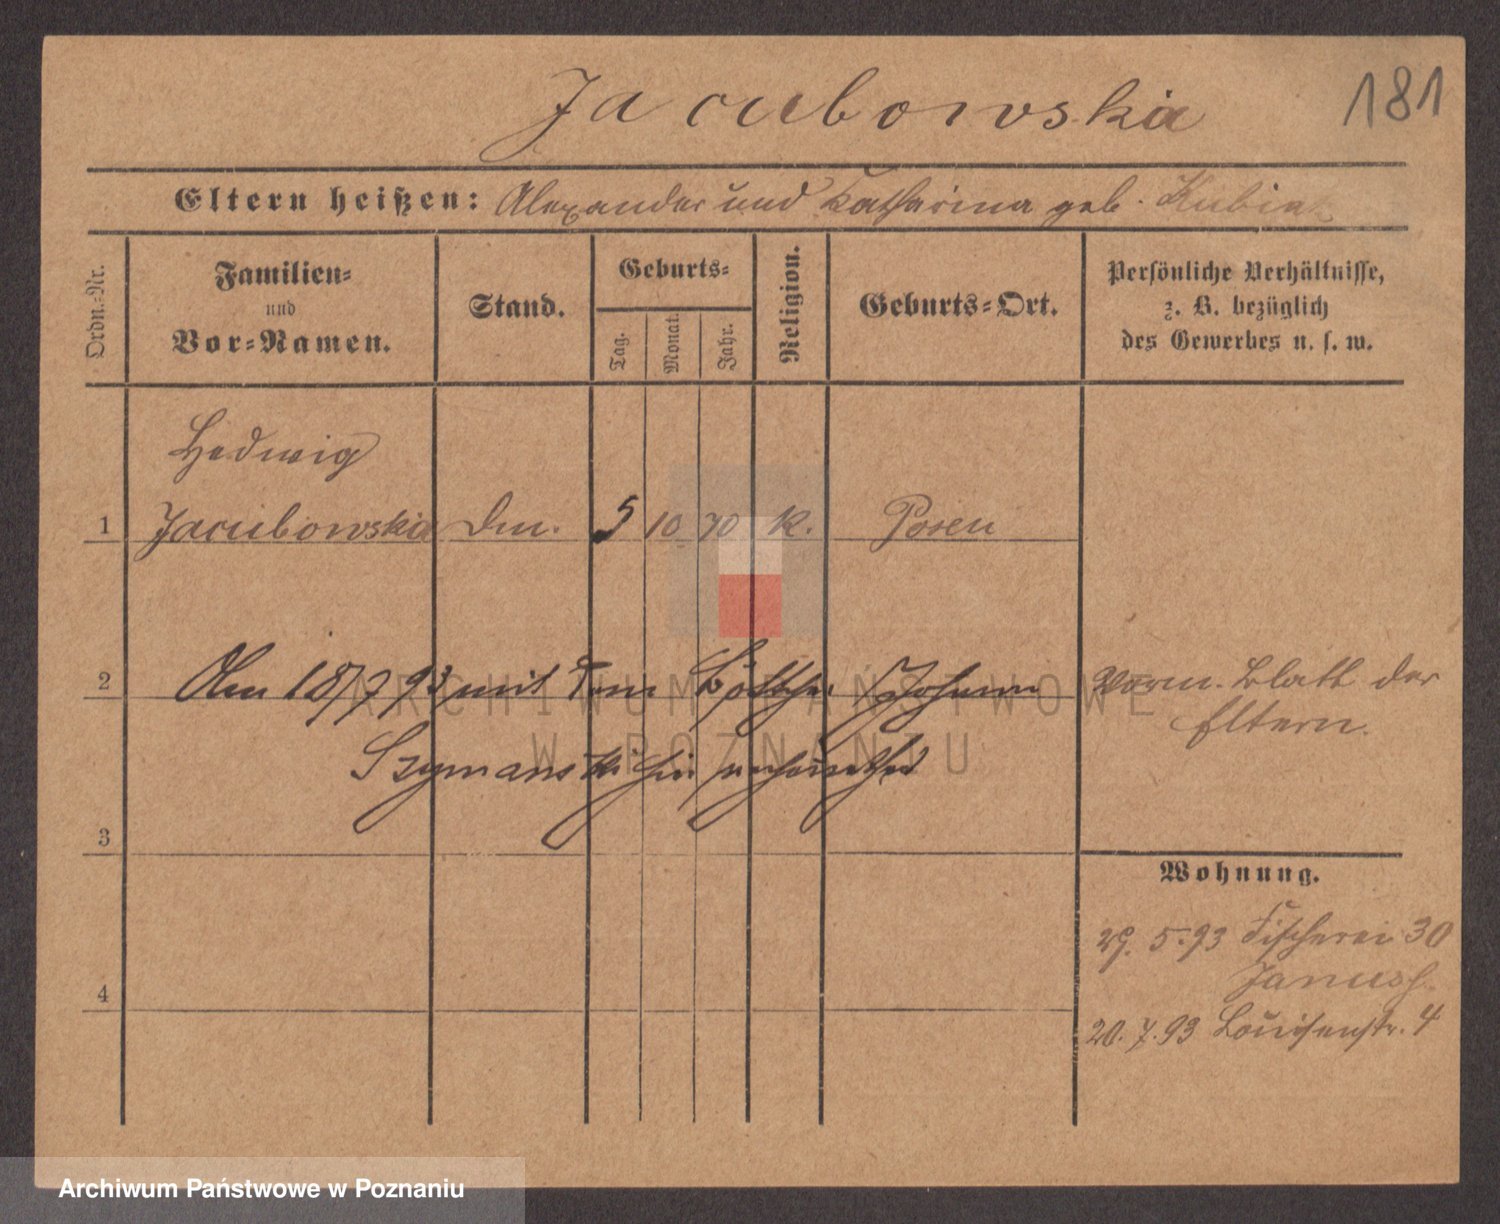 181
Jacubowska
Eltern heißen: Alexander und Katharina geb. Kubiak
Ordn.=Nr.
Familien=
und
Vor=Namen.
Stand.
Geburts=
Tag.
Monat.
Jahr.
Religion.
Geburts=Ort.
Persönliche Verhältnisse,
z. B. bezüglich
des Gewerbes u. s. w.
Hedwig
1 Jacubowska 5 10 70 k. Posen
2 Am 18/7 93 mit dem Böttcher Johann
Szymanski hier verheirathet
Vorm. Blatt der
Eltern.
3
4
Wohnung.
29. 5. 93 Fischerei 30
20. 7. 93 Louisenstr. 4
ARCHIWUM PAŃSTWOWE
W POZNANIU
Archiwum Państwowe w Poznaniu